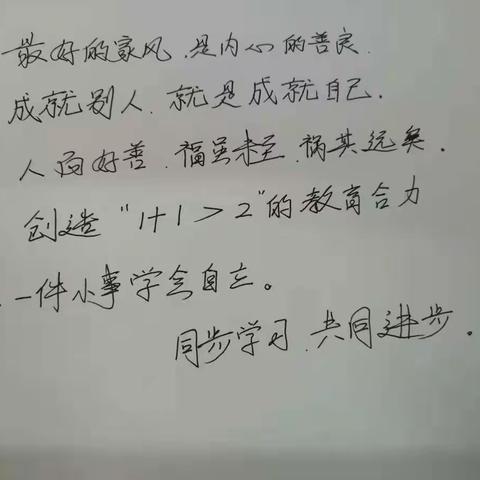 最好的家风、是内心的善良.
成就别人、就是成就自己.
人而好善、福虽未至、祸其远矣.
创造“1+1>2”的教育合力
、一件小事学会自立。
同步学习、共同进步。